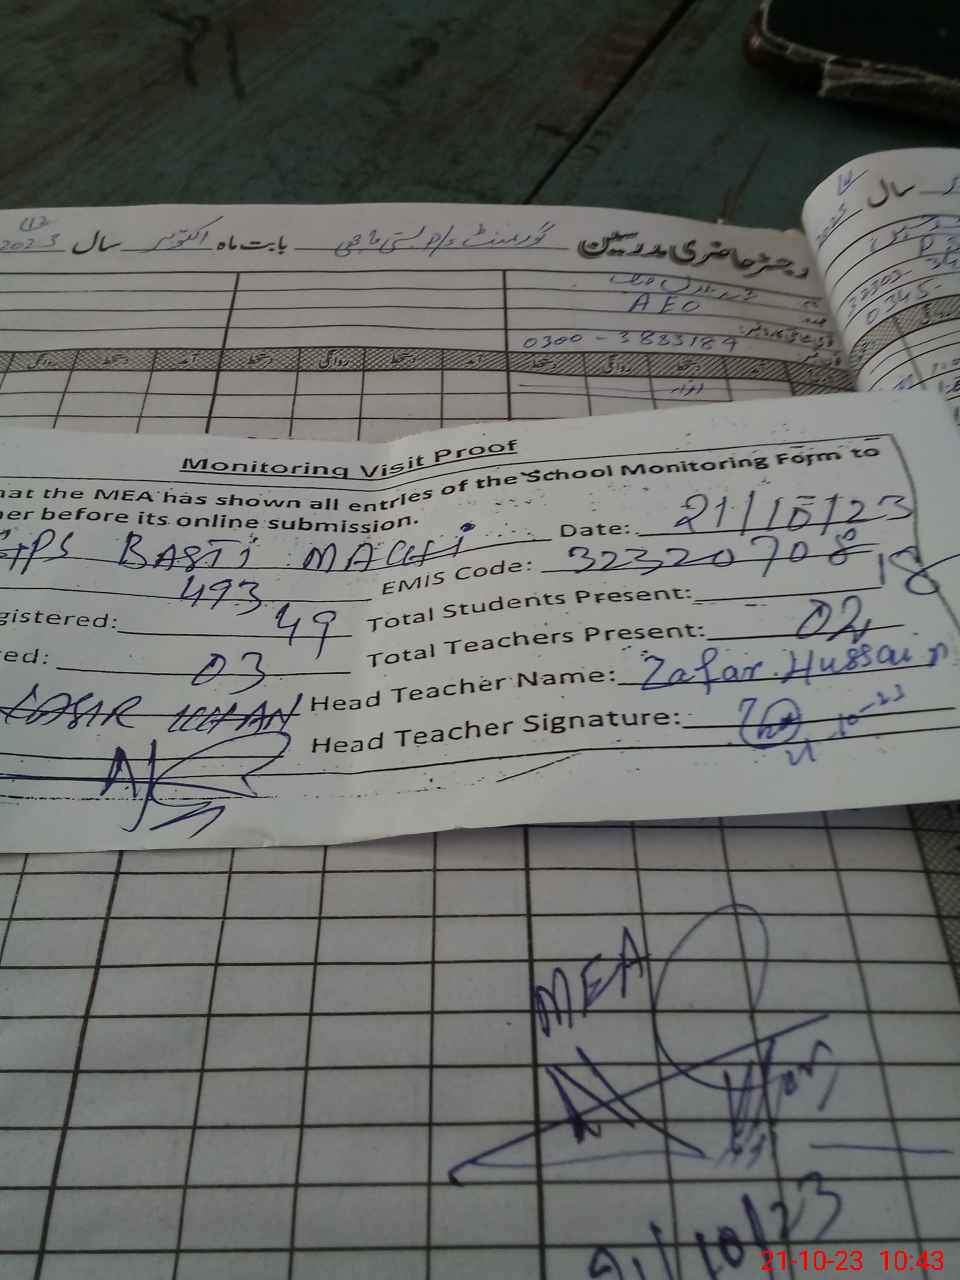 رجسٹر حاضری مدرسین گورنمنٹ p/s بستی ماچھی بابت ماہ اکتوبر سال 2023
سال
AEO
0300-3833184
0345-
آمد دستخط روانگی دستخط آمد دستخط روانگی دستخط آمد دستخط روانگی
Monitoring Visit Proof
hat the MEA has shown all entries of the School Monitoring Form to
her before its online submission.
GPS BASTI MACHI Date: 21/10/23
493 EMIS Code: 32320708
gistered: 49 Total Students Present: 18
ed: 03 Total Teachers Present: 02
KHAN Head Teacher Name: Zafar Hussain
Head Teacher Signature:
21-10-23
MEA
21/10/23
21-10-23 10:43